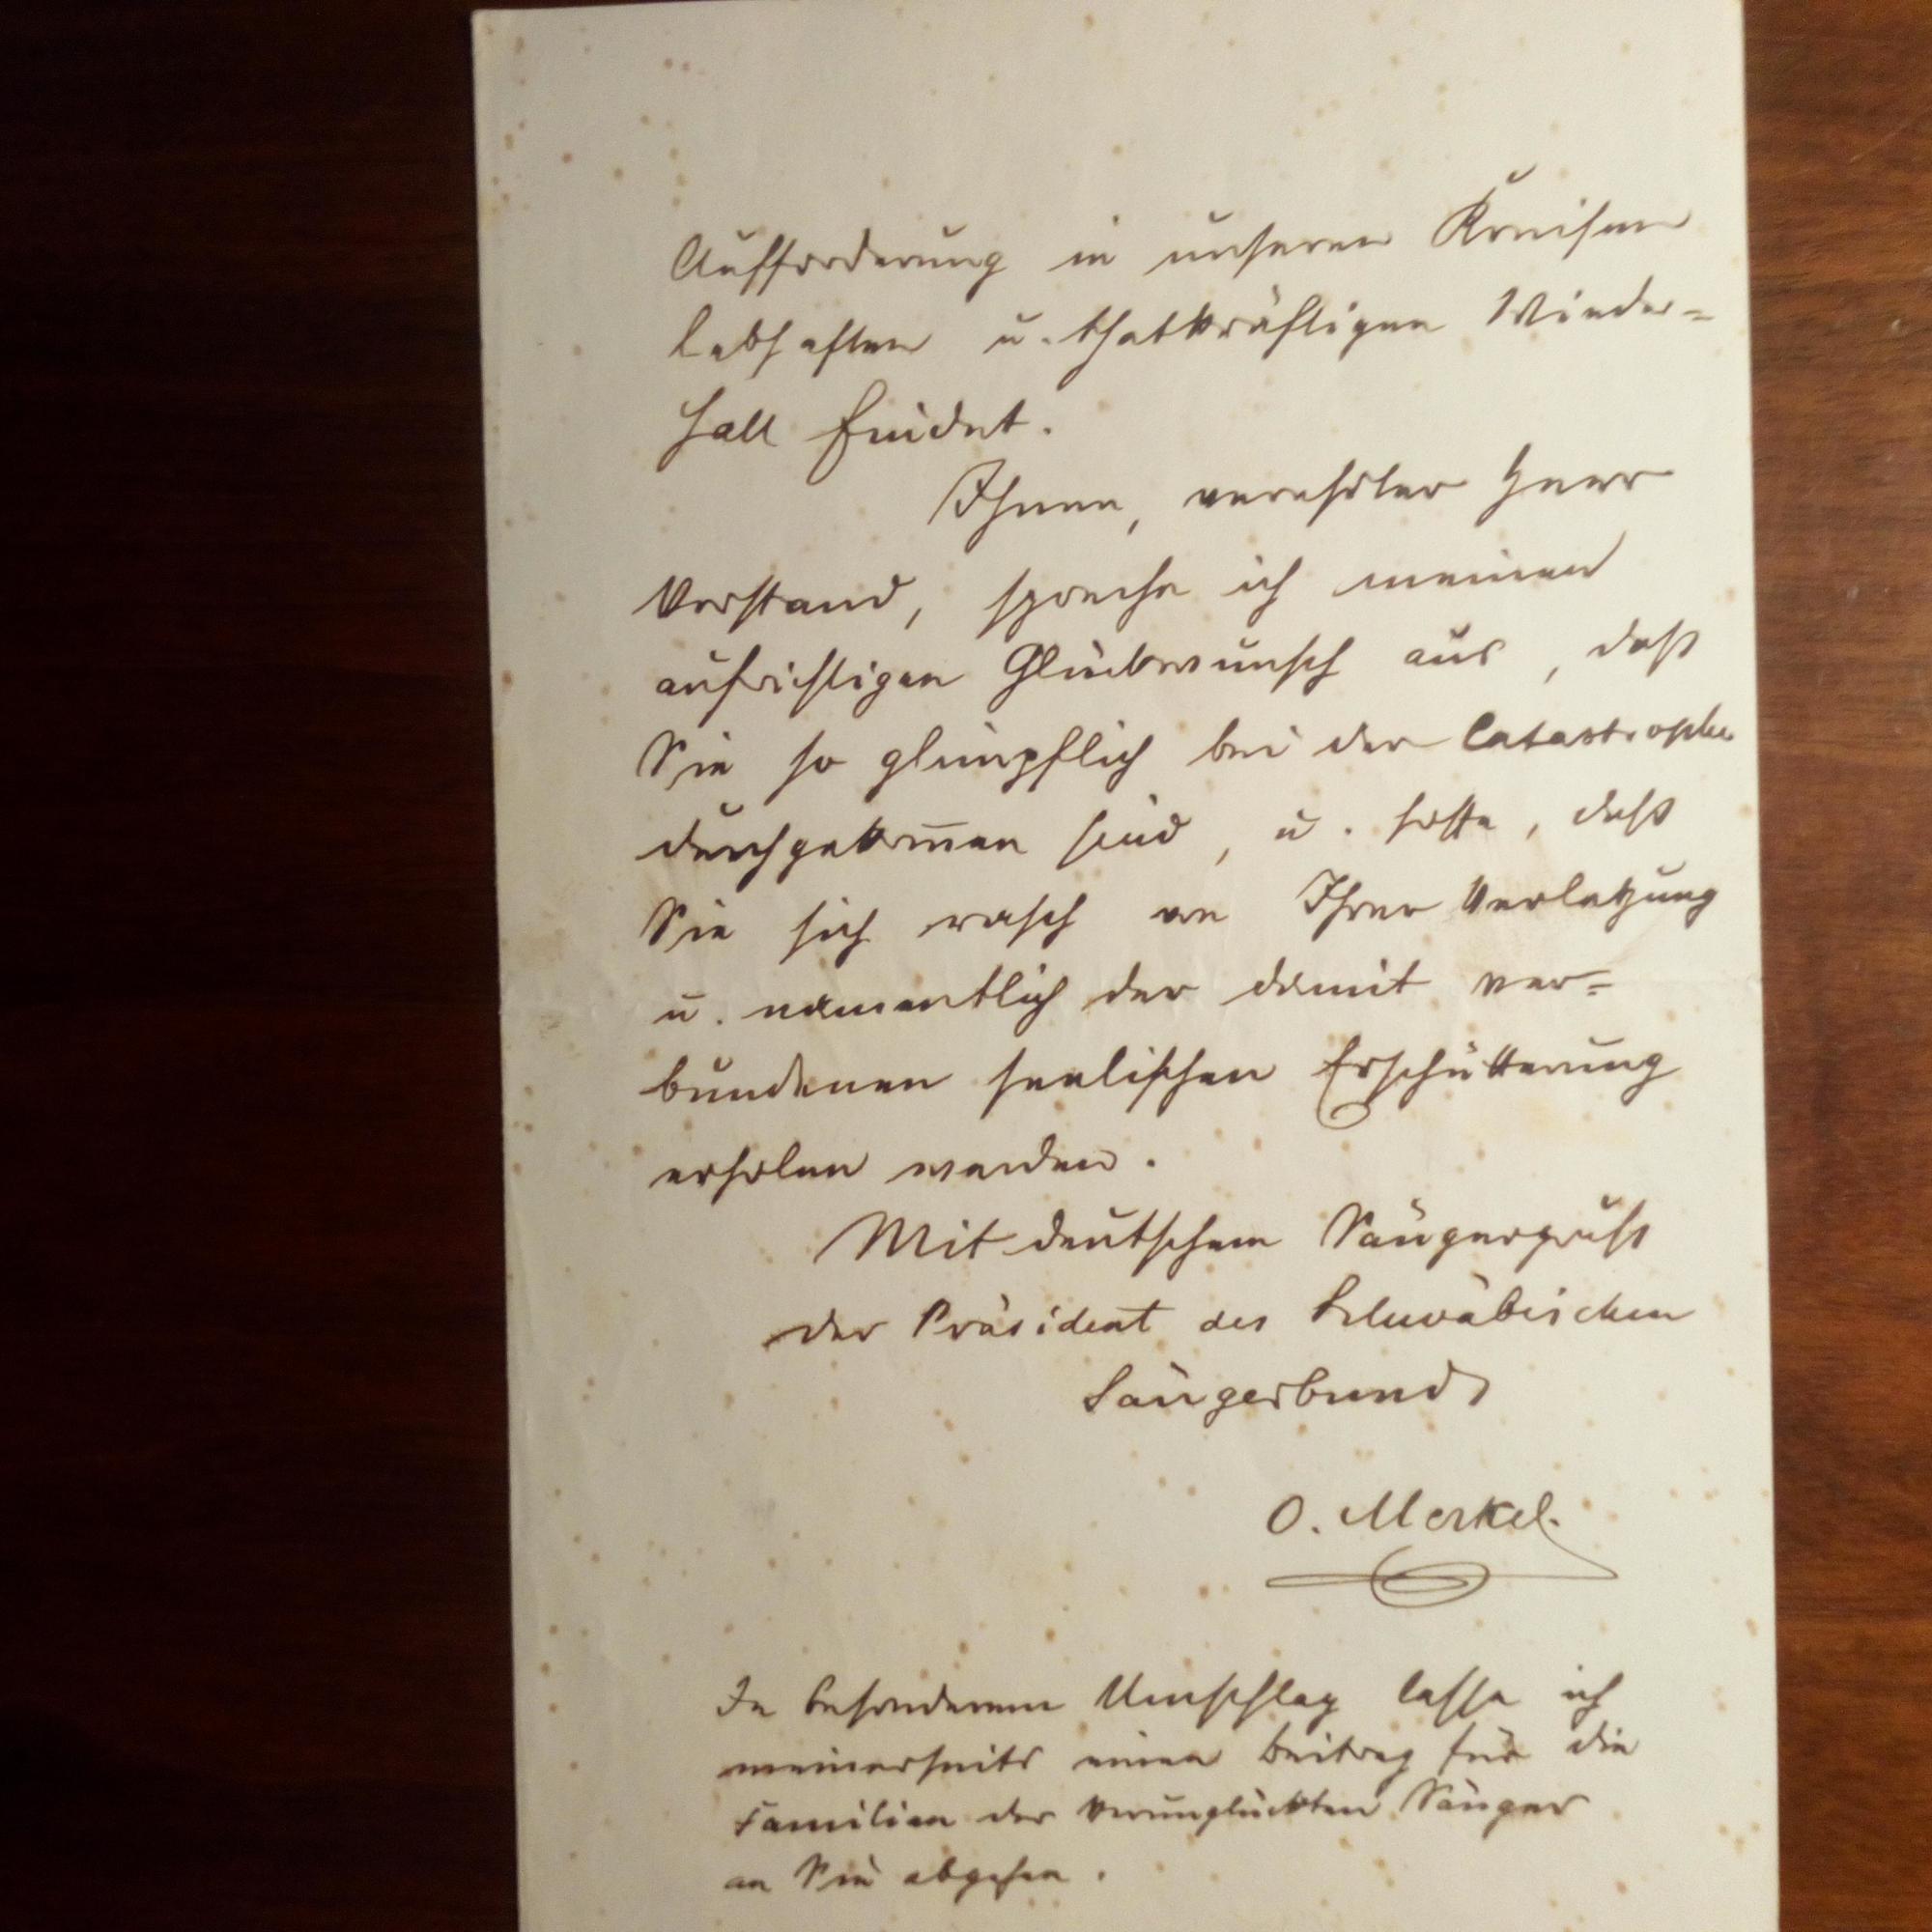 Aufforderung in unseren Kreisen
lebhaften u. thatkräftigen Wieder=
hall findet.
Ihnen, verehrter Herr
Vorstand, spreche ich meinen
aufrichtigen Glückwunsch aus, daß
Sie so glimpflich bei der Catastrophe
durchgekom̅en sind, u. hoffe, daß
Sie sich rasch von Ihrer Verletzung
u. namentlich der damit ver=
bundenen seelischen Erschütterung
erholen werden.
Mit deutschem Sängergruß
der Präsident des Schwäbischen
Sängerbunds
O. Merkel.
In besonderem Umschlag lasse ich
meinerseits einen Beitrag für die
Familien der verunglückten Sänger
an Sie abgehen.